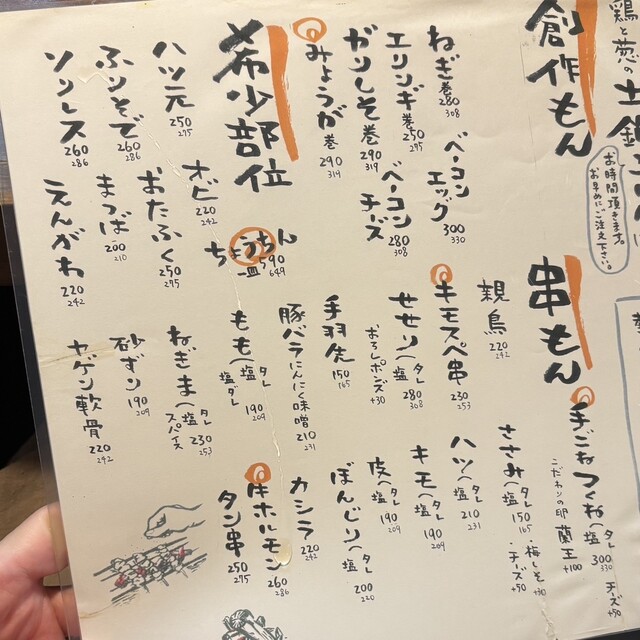 鶏と葱の土鍋
お時間頂きます。
お早めにご注文下さい。
創作もん
ねぎ巻 280 308
ベーコンエッグ 300 330
エリンギ巻 250 275
ベーコンチーズ 280 308
ガリしそ巻 290 319
みょうが巻 290 319
希少部位
ハツ元 250 275
オビ 220 242
ちょうちん 一皿 590 649
ふりそで 260 286
おたふく 250 275
ソリレス 260 286
まつば 200 210
えんがわ 220 242
串もん
手ごねつくね(タレ 塩 300 330 チーズ +50
こだわりの卵 蘭王 +100
親鳥 220 242
ささみ(タレ 塩 150 165 ・梅しそ +30 ・チーズ +50
キモスペ串 230 253
ハツ(タレ 塩 210 231
せせり(タレ 塩 280 308
おろしポンズ +30
キモ(タレ 塩 190 209
手羽先 150 165
皮(タレ 塩 190 209
豚バラにんにく味噌 210 231
ぼんじり(タレ 塩 200 220
もも(タレ 塩ダレ 190 209
カシラ 220 242
ねぎま(タレ 塩 スパイス 230 253
牛ホルモン 260 286
砂ずり 190 209
タン串 250 275
ヤゲン軟骨 220 242